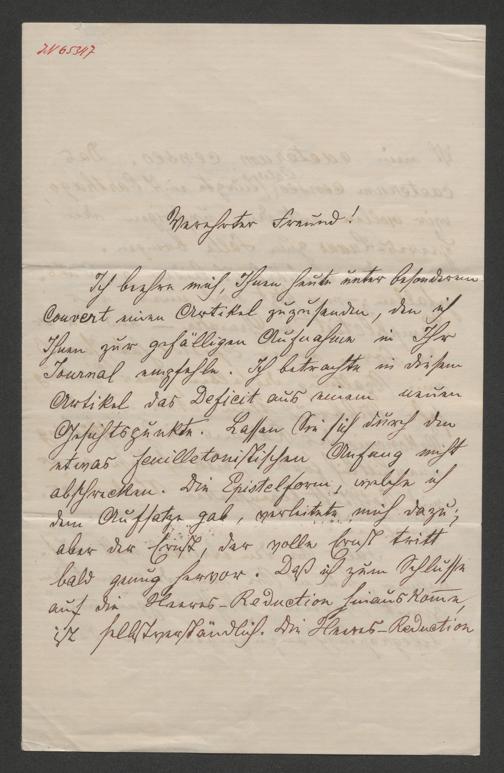 JN 65347
Verehrter Freund!
Ich beehre mich, Ihnen heute unter besonderem
Couvert einen Artikel zuzusenden, den ich
Ihnen zur gefälligen Aufnahme in Ihr
Journal empfehle. Ich betrachte in diesem
Artikel das Deficit aus einem neuen
Gesichtspunkte. Lassen Sie sich durch den
etwas feuilletonistischen Anfang nicht
abschrecken. Die Epistelform, welche ich
dem Aufsatze gab, verleitete mich dazu;
aber der Ernst, der volle Ernst tritt
bald genug hervor. Daß ich zum Schlusse
auf die Heeres-Reduction hinauskom̄e,
ist selbstverständlich. Die Heeres-Reduction